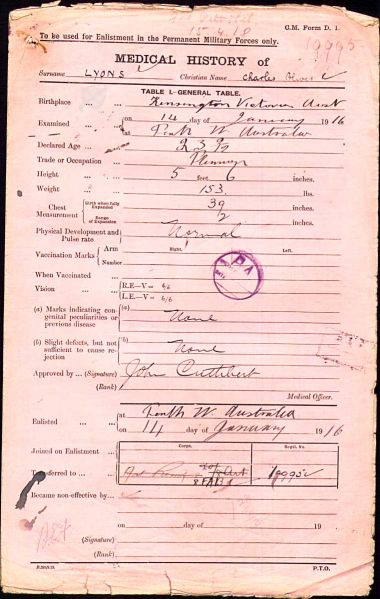 G.M. Form D. 1.
To be used for Enlistment in the Permanent Military Forces only.
19995
MEDICAL HISTORY of
Surname LYONS Christian Name Charles
TABLE I.—GENERAL TABLE.
Birthplace ... Kensington Victoria Aust
Examined ... on 14 day of January 1916
at Perth W. Australia
Declared Age ... 23
Trade or Occupation ...
Height ... 5 feet 6 inches.
Weight ... 153 lbs.
Chest Measurement Girth when fully Expanded 39 inches.
Range of Expansion 2 inches.
Physical Development and Pulse rate Normal
Vaccination Marks Arm Right. Left.
Number
When Vaccinated ...
Vision ... R.E—V= 6/6
L.E.—V= 6/6
(a) Marks indicating congenital peculiarities or previous disease (a) None
(b) Slight defects, but not sufficient to cause rejection (b) None
Approved by ... (Signature) John Cuthbert
(Rank)
Medical Officer.
Enlisted ... at Perth W. Australia
on 14 day of January 1916
Corps. Regtl. No.
Joined on Enlistment ...
Transferred to ... 8 FAB 19995
Became non-effective by ...
on day of 19
(Signature)
(Rank)
P.T.O.